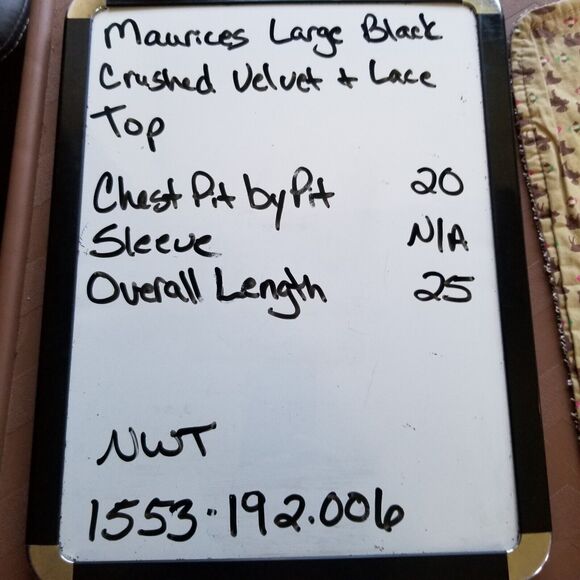 Maurices Large Black
Crushed Velvet + Lace
Top
Chest Pit by Pit 20
Sleeve N/A
Overall Length 25
NWT
1553.192.006